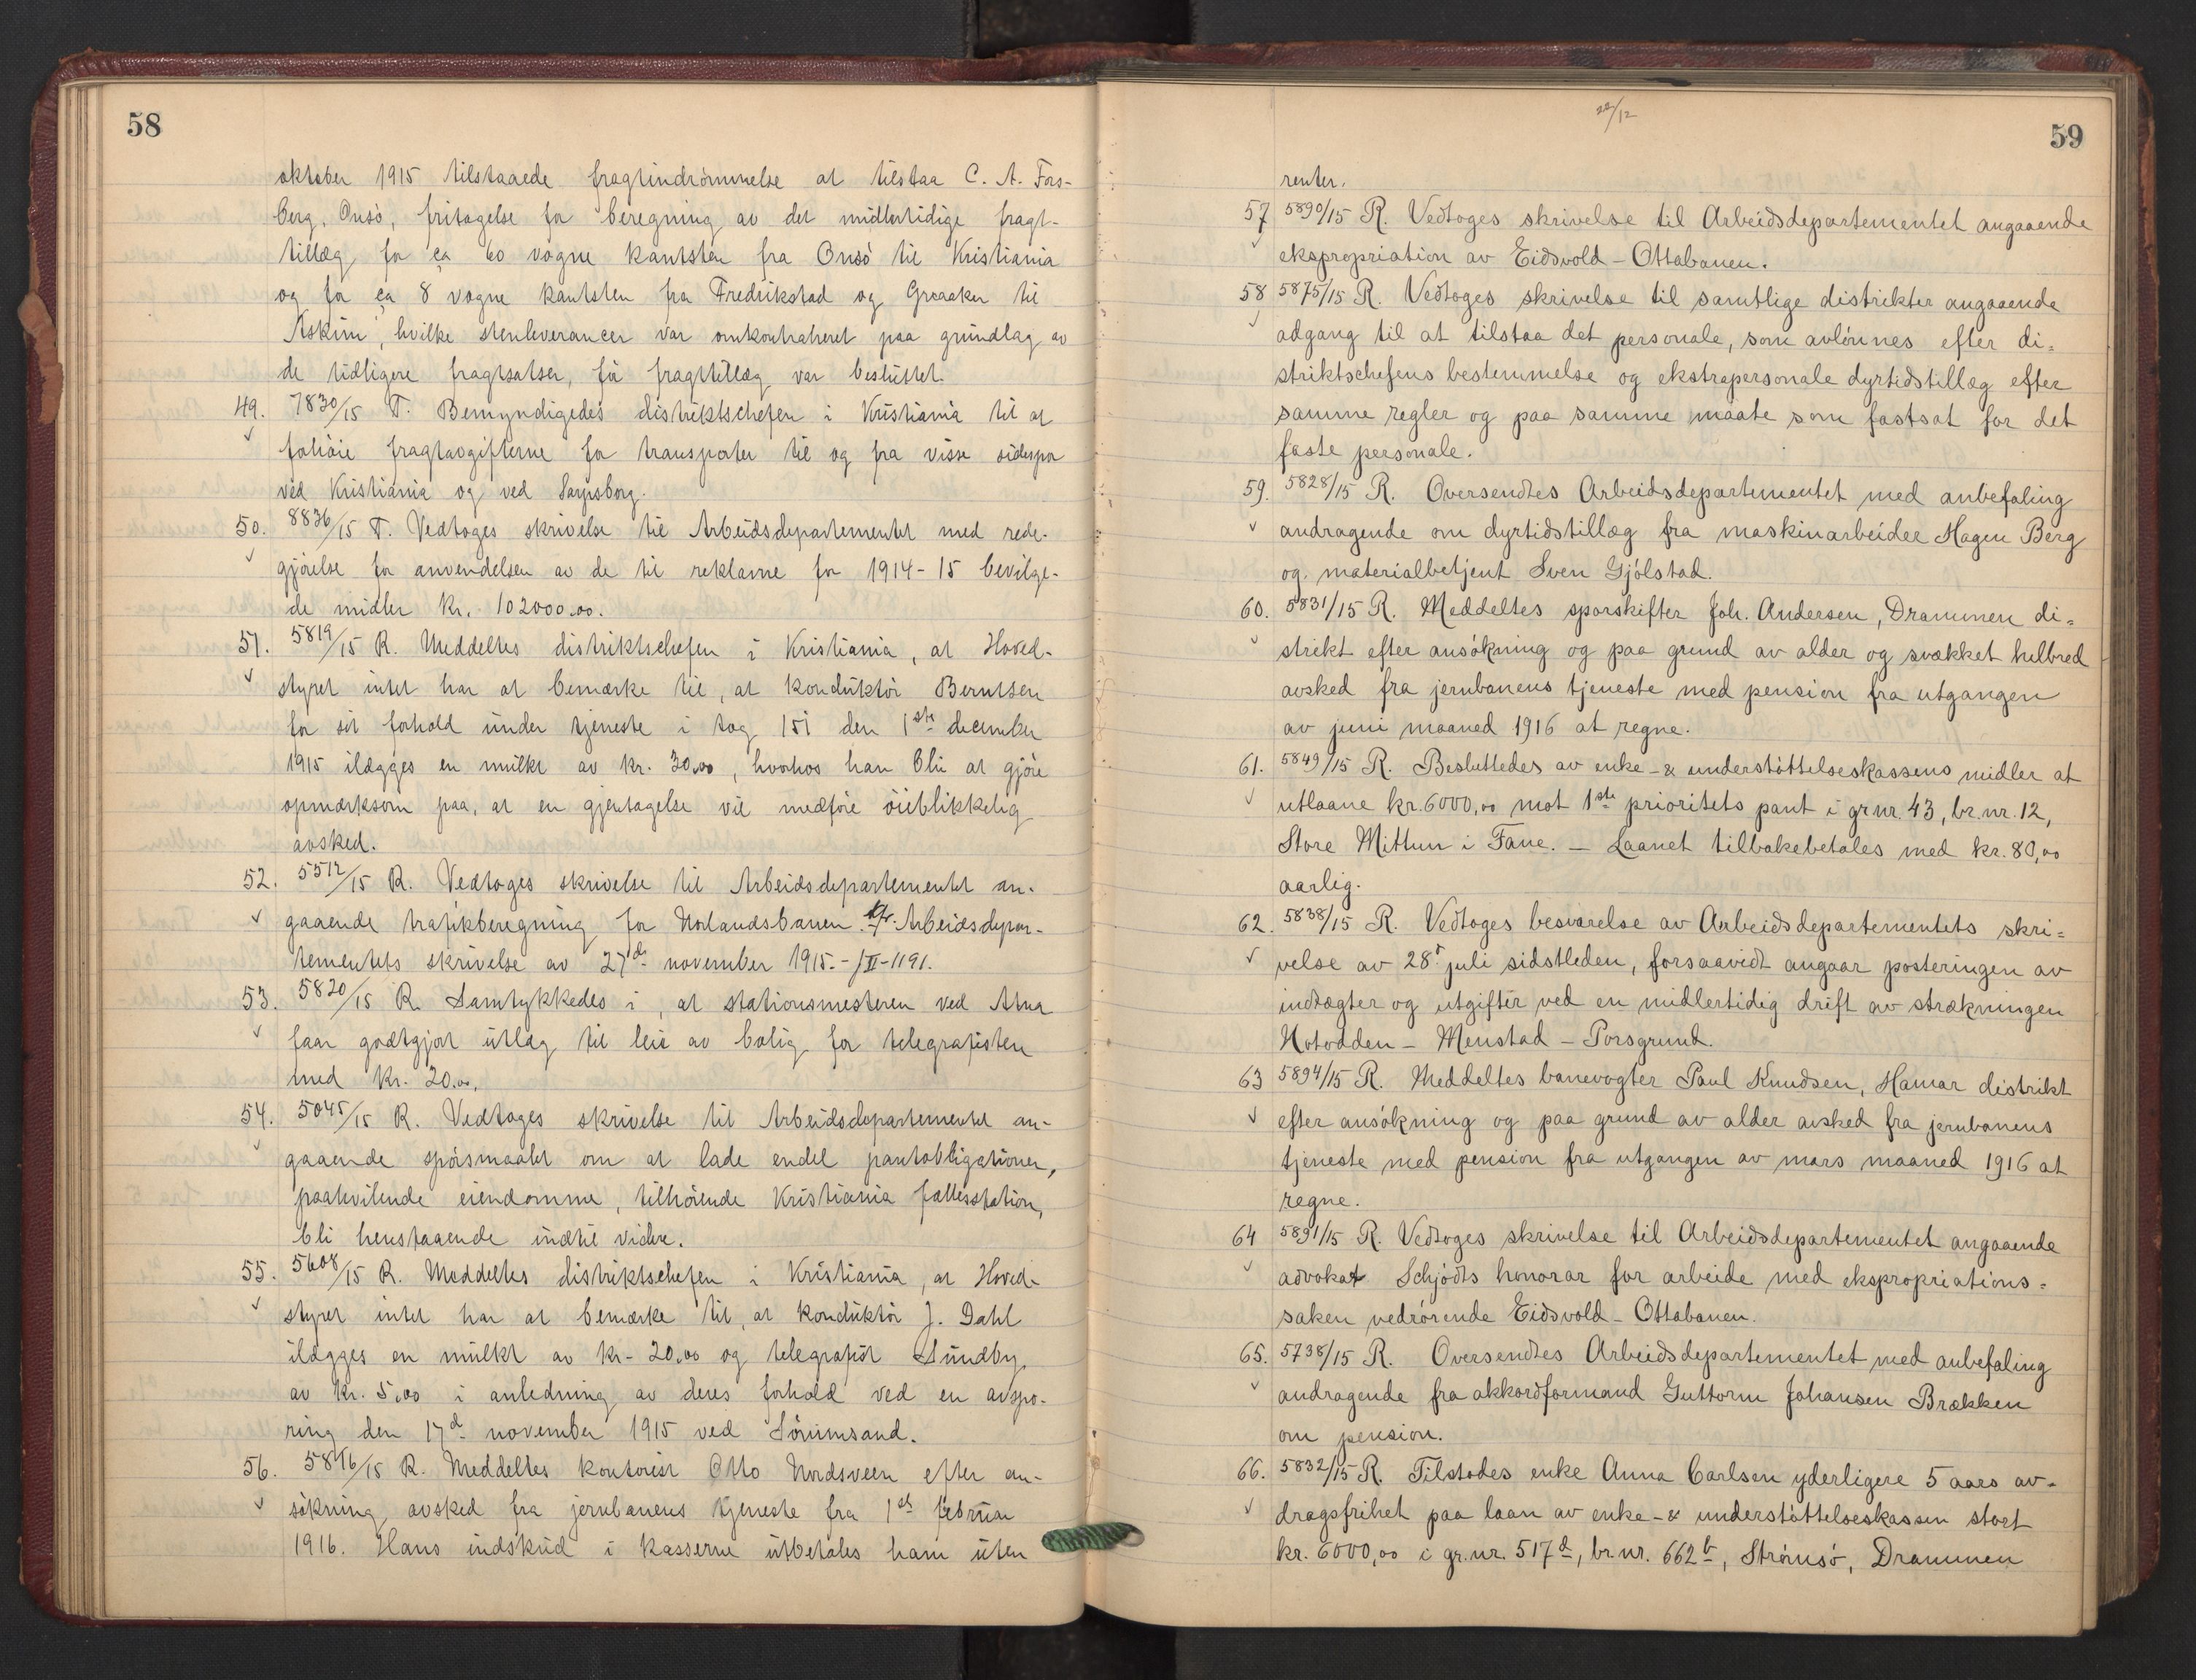 58
oktober 1915 tilstaaede fragtindrömmelse at tilstaa C. A. Fors-
berg, Onsö, fritagelse for beregning av det midlertidige fragt-
tillæg for ca 60 vogne kantsten fra Onsö til Kristiania
og for ca 8 vogne kantsten fra Fredrikstad og Greaaker til
Askim, hvilke stenleverancer var omkontraheret paa grundlag av
de tidligere fragtsatser, för fragttillæg var besluttet.
49. 7830/15 T. Bemyndigedes distriktschefen i Kristiania til at
forhöie fragtavgifterne for transporter til og fra visse sidespor
ved Kristiania og ved Sarpsborg.
50. 8836/15 T. Vedtoges skrivelse til Arbeidsdepartementet med rede-
gjörelse for anvendelsen av de til reklame for 1914-15 bevilge-
de midler kr. 102000.00.
51. 5819/15 R. Meddeltes distriktschefen i Kristiania, at Hoved-
styret intet har at bemærke til, at konduktör Berntsen
for sit forhold under tjeneste i tog 151 den 1ste december
1915 ilægges en mulkt av kr. 30,00, hvorhos han blir at gjöre
opmerksom paa, at en gjentagelse vil medföre öieblikkelig
avsked.
52. 5512/15 R. Vedtoges skrivelse til Arbeidsdepartementet an-
gaaende trafikberegning for Norlandsbanen. Jfr. Arbeidsdepar-
tementets skrivelse av 27de november 1915.- J II-1191.
53. 5820/15 R. Samtykkedes i, at stationsmesteren ved Atna
faar godtgjort utlæg til leie av bolig for telegrafisten
med kr. 20.00.
54. 5045/15 R. Vedtoges skrivelse til Arbeidsdepartementet an-
gaaende spörsmaalet om at lade endel pantobligationer,
paahvilende eiendomme, tilhörende Kristiania fællesstation,
bli henstaaende indtil videre.
55. 5608/15 R. Meddeltes distriktschefen i Kristiania, at Hoved-
styret intet har at bemærke til, at konduktör J. Dahl
ilægges en mulkt av kr. 20.00 og telegrafist Sundby
av kr. 5.00 i anledning av deres forhold ved en avspo-
ring den 17d november 1915 ved Sörumsand.
56. 5846/15 R. Meddeltes kontorist Otto Nordsveen efter an-
sökning avsked fra jernbanens tjeneste fra 1st februar
1916. Hans indskud i kasserne utbetales ham uten
22/12
59
renter.
57 5890/15 R. Vedtoges skrivelse til Arbeidsdepartementet angaaende
ekspropriation av Eidsvold-Ottabanen.
58 5875/15 R. Vedtoges skrivelse til samtlige distrikter angaaende
adgang til at tilstaa det personale, som avlönnes efter di=
striktschefens bestemmelse og ekstrapersonale dyrtidstillæg efter
samme regler og paa samme maate som fastsat for det
faste personale.
59. 5828/15 R. Oversendtes Arbeidsdepartementet med anbefaling
andragende om dyrtidstillæg fra maskinarbeider Hagen Berg
og materialbetjent Sven Gjölstad.
60. 5831/15 R. Meddeltes sporskifter Joh. Andersen, Drammen di=
strikt efter ansökning og paa grund av alder og svækket helbred
avsked fra jernbanens tjeneste med pension fra utgangen
av juni maaned 1916 at regne.
61. 5849/15 R. Besluttedes av enke- & understöttelseskassens midler at
utlaane kr. 6000,00 mot 1ste prioritets pant i gr.nr. 43, br.nr. 12,
Store Mittun i Fane. - Laanet tilbakebetales med kr. 80,00
aarlig.
62. 5838/15 R. Vedtoges besvarelse av Arbeidsdepartementets skri=
velse av 28' juli sidstleden, forsaavidt angaar posteringen av
indtægter og utgifter ved en midlertidig drift av strækningen
Notodden - Menstad - Porsgrund.
63 5894/15 R. Meddeltes banevogter Paul Knudsen, Hamar distrikt
efter ansökning og paa grund av alder avsked fra jernbanens
tjeneste med pension fra utgangen av mars maaned 1916 at
regne.
64 5891/15 R. Vedtoges skrivelse til Arbeidsdepartementet angaaende
advokat Schjödts honorar for arbeide med ekspropriations=
saken vedrörende Eidsvold-Ottabanen.
65. 5738/15 R. Oversendtes Arbeidsdepartementet med anbefaling
andragende fra akkordformand Guttorm Johansen Brækken
om pension.
66. 5832/15 R. Tilstodes enke Anna Carlsen yderligere 5 aars av-
dragsfrihet paa laan av enke- & understöttelseskassen stort
kr. 6000,00 i gr.nr. 517d, br.nr. 662b, Strömsö, Drammen